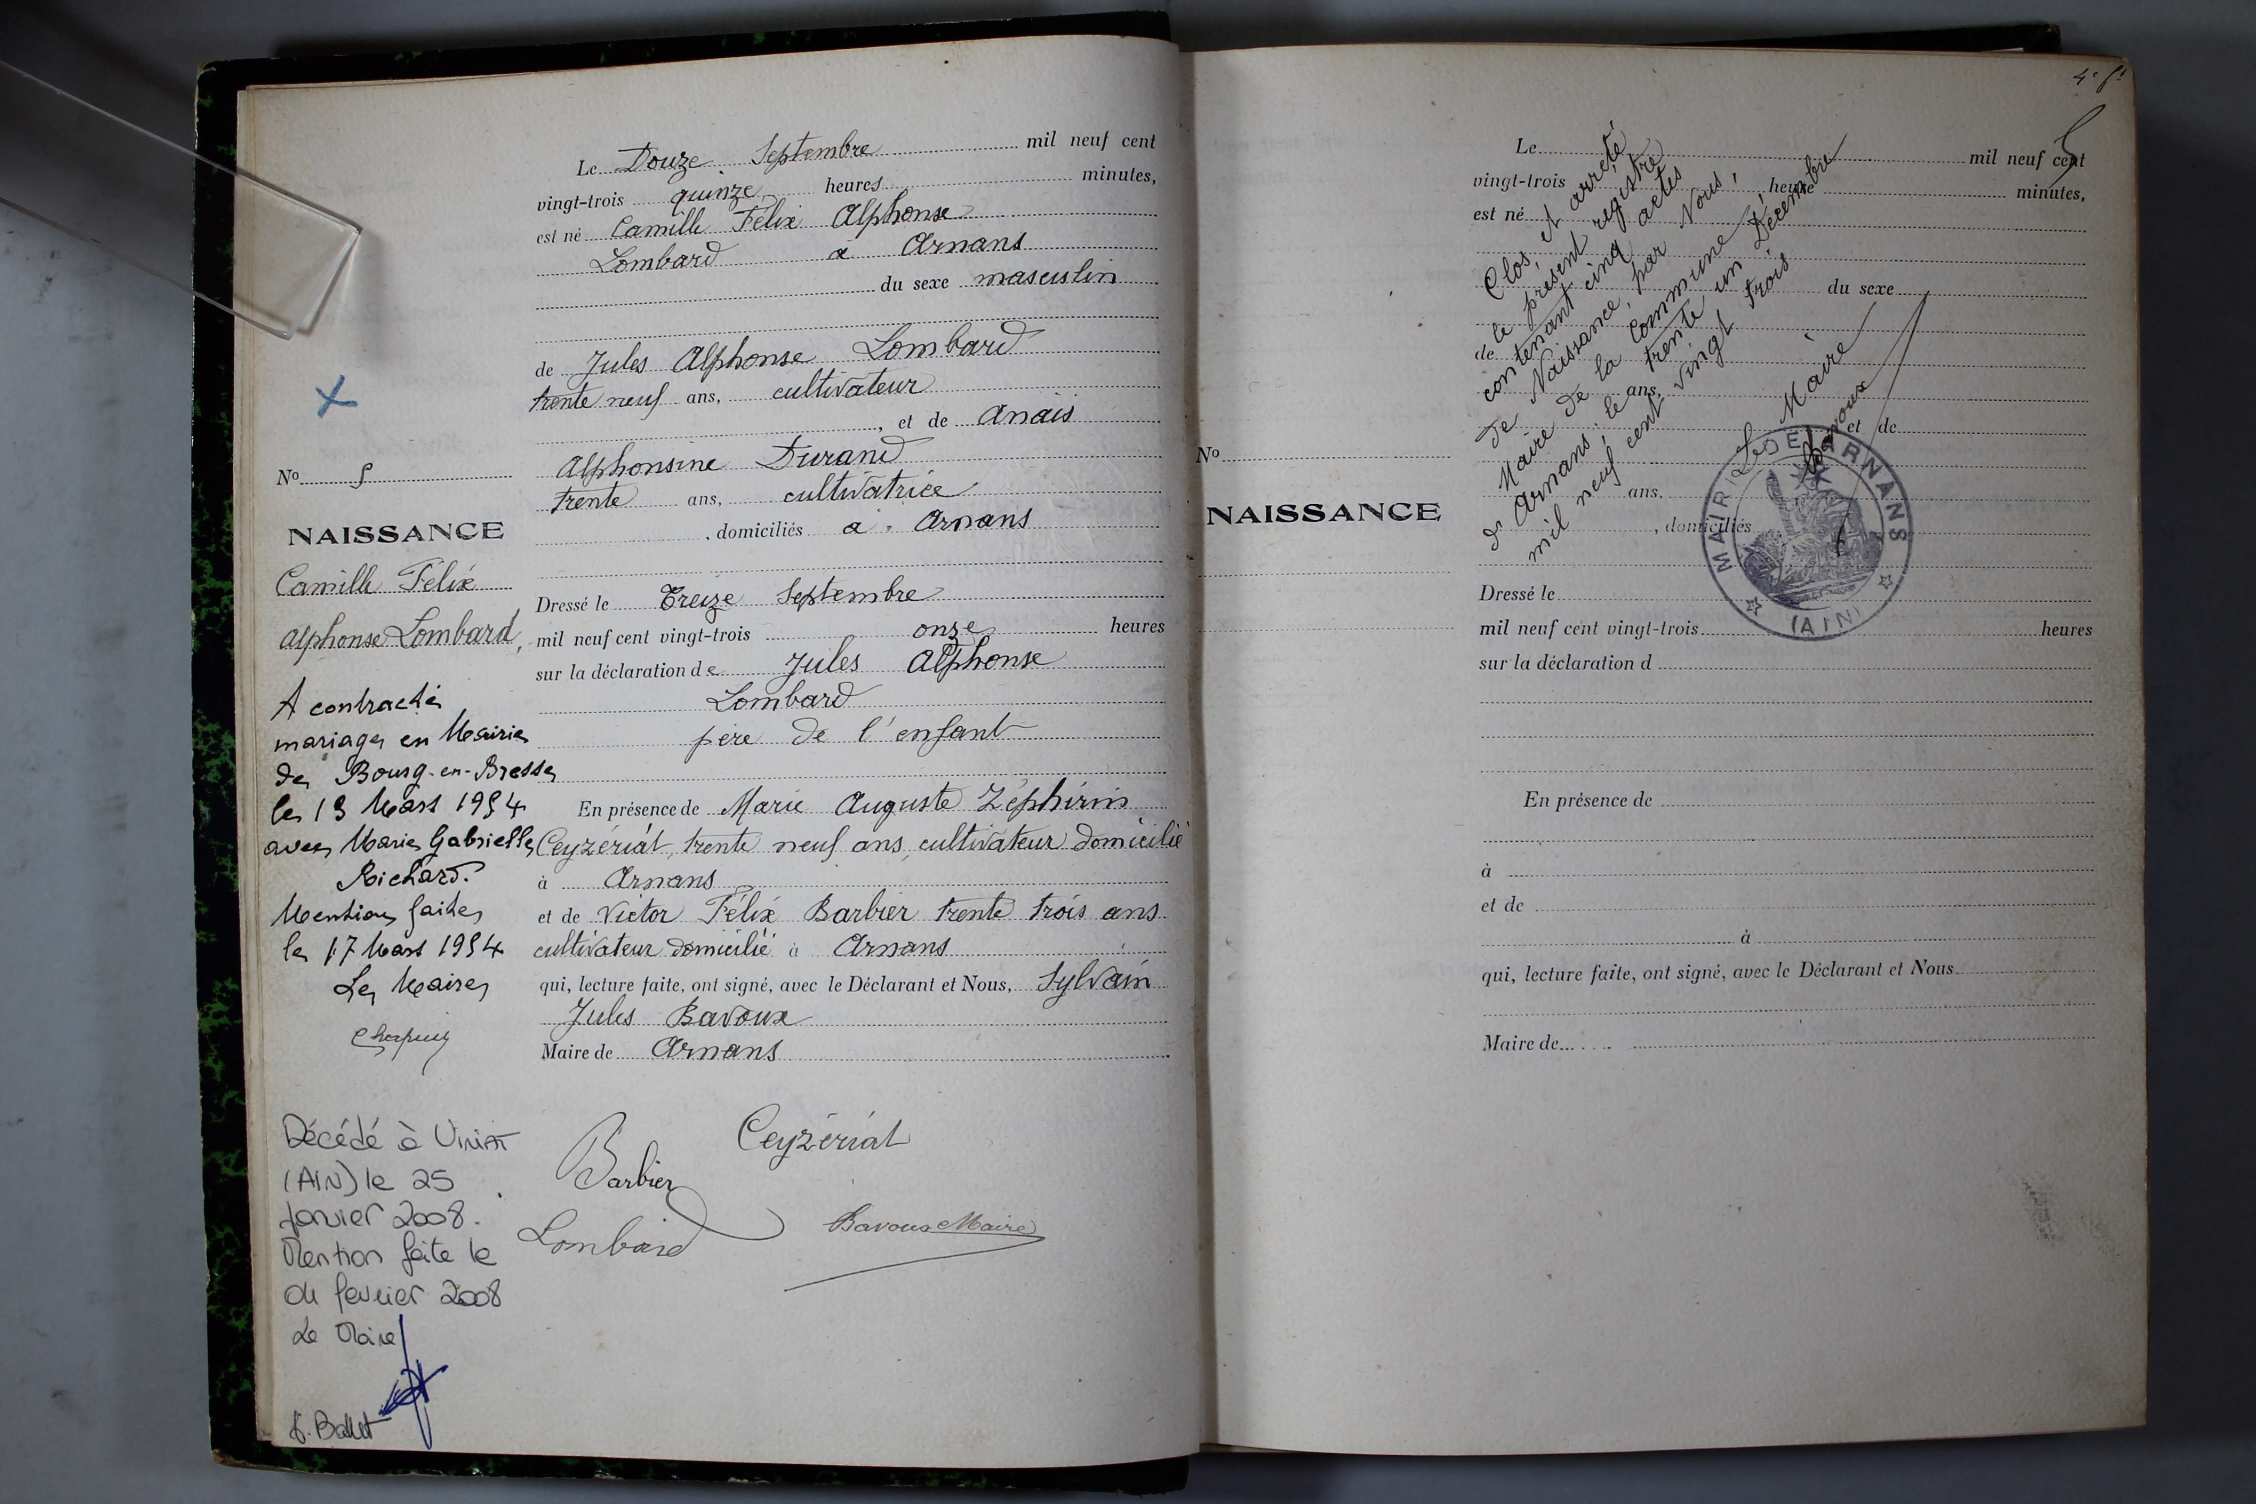 Le Douze Septembre mil neuf cent
vingt-trois quinze heures minutes,
est né Camille Félix Alphonse
Lombard à Arnans
du sexe masculin
de Jules Alphonse Lombard
trente neuf ans, cultivateur
, et de Anaïs
Alphonsine Durand
trente ans, cultivatrice
, domiciliés à Arnans
Dressé le Treize Septembre
mil neuf cent vingt-trois onze heures
sur la déclaration de Jules Alphonse
Lombard
père de l'enfant
En présence de Marie Auguste Zéphirin
Ceyzériat, trente neuf ans, cultivateur domicilié
à Arnans
et de Victor Félix Barbier trente trois ans
cultivateur domicilié à Arnans
qui, lecture faite, ont signé, avec le Déclarant et Nous, Sylvain
Jules Bavoux
Maire de Arnans
Ceyzériat
Barbier
Lombard
Bavoux Maire
No 5
NAISSANCE
Camille Félix
Alphonse Lombard,
A contracté
mariage en Mairie
de Bourg-en-Bresse
le 13 Mars 1954
avec Marie Gabrielle
Richard.
Mention faite
le 17 Mars 1954
Le Maire
Décédé à Viriat
(AIN) le 25
janvier 2008.
Mention faite le
04 février 2008
Le Maire
Ballet
4e ft
5
No
NAISSANCE
Le mil neuf cent
vingt-trois heure minutes,
est né
du sexe
de
ans,
et de
ans,
, domiciliés
Dressé le
mil neuf cent vingt-trois heures
sur la déclaration d
En présence de
à
et de
à
qui, lecture faite, ont signé, avec le Déclarant et Nous
Maire de
Clos et arrêté
le présent registre
contenant cinq actes
de Naissance, par Nous,
Maire de la Commune
d'Arnans, le trente un Décembre
mil neuf cent vingt trois
Le Maire
Bavoux
MAIRIE D'ARNANS
(AIN)